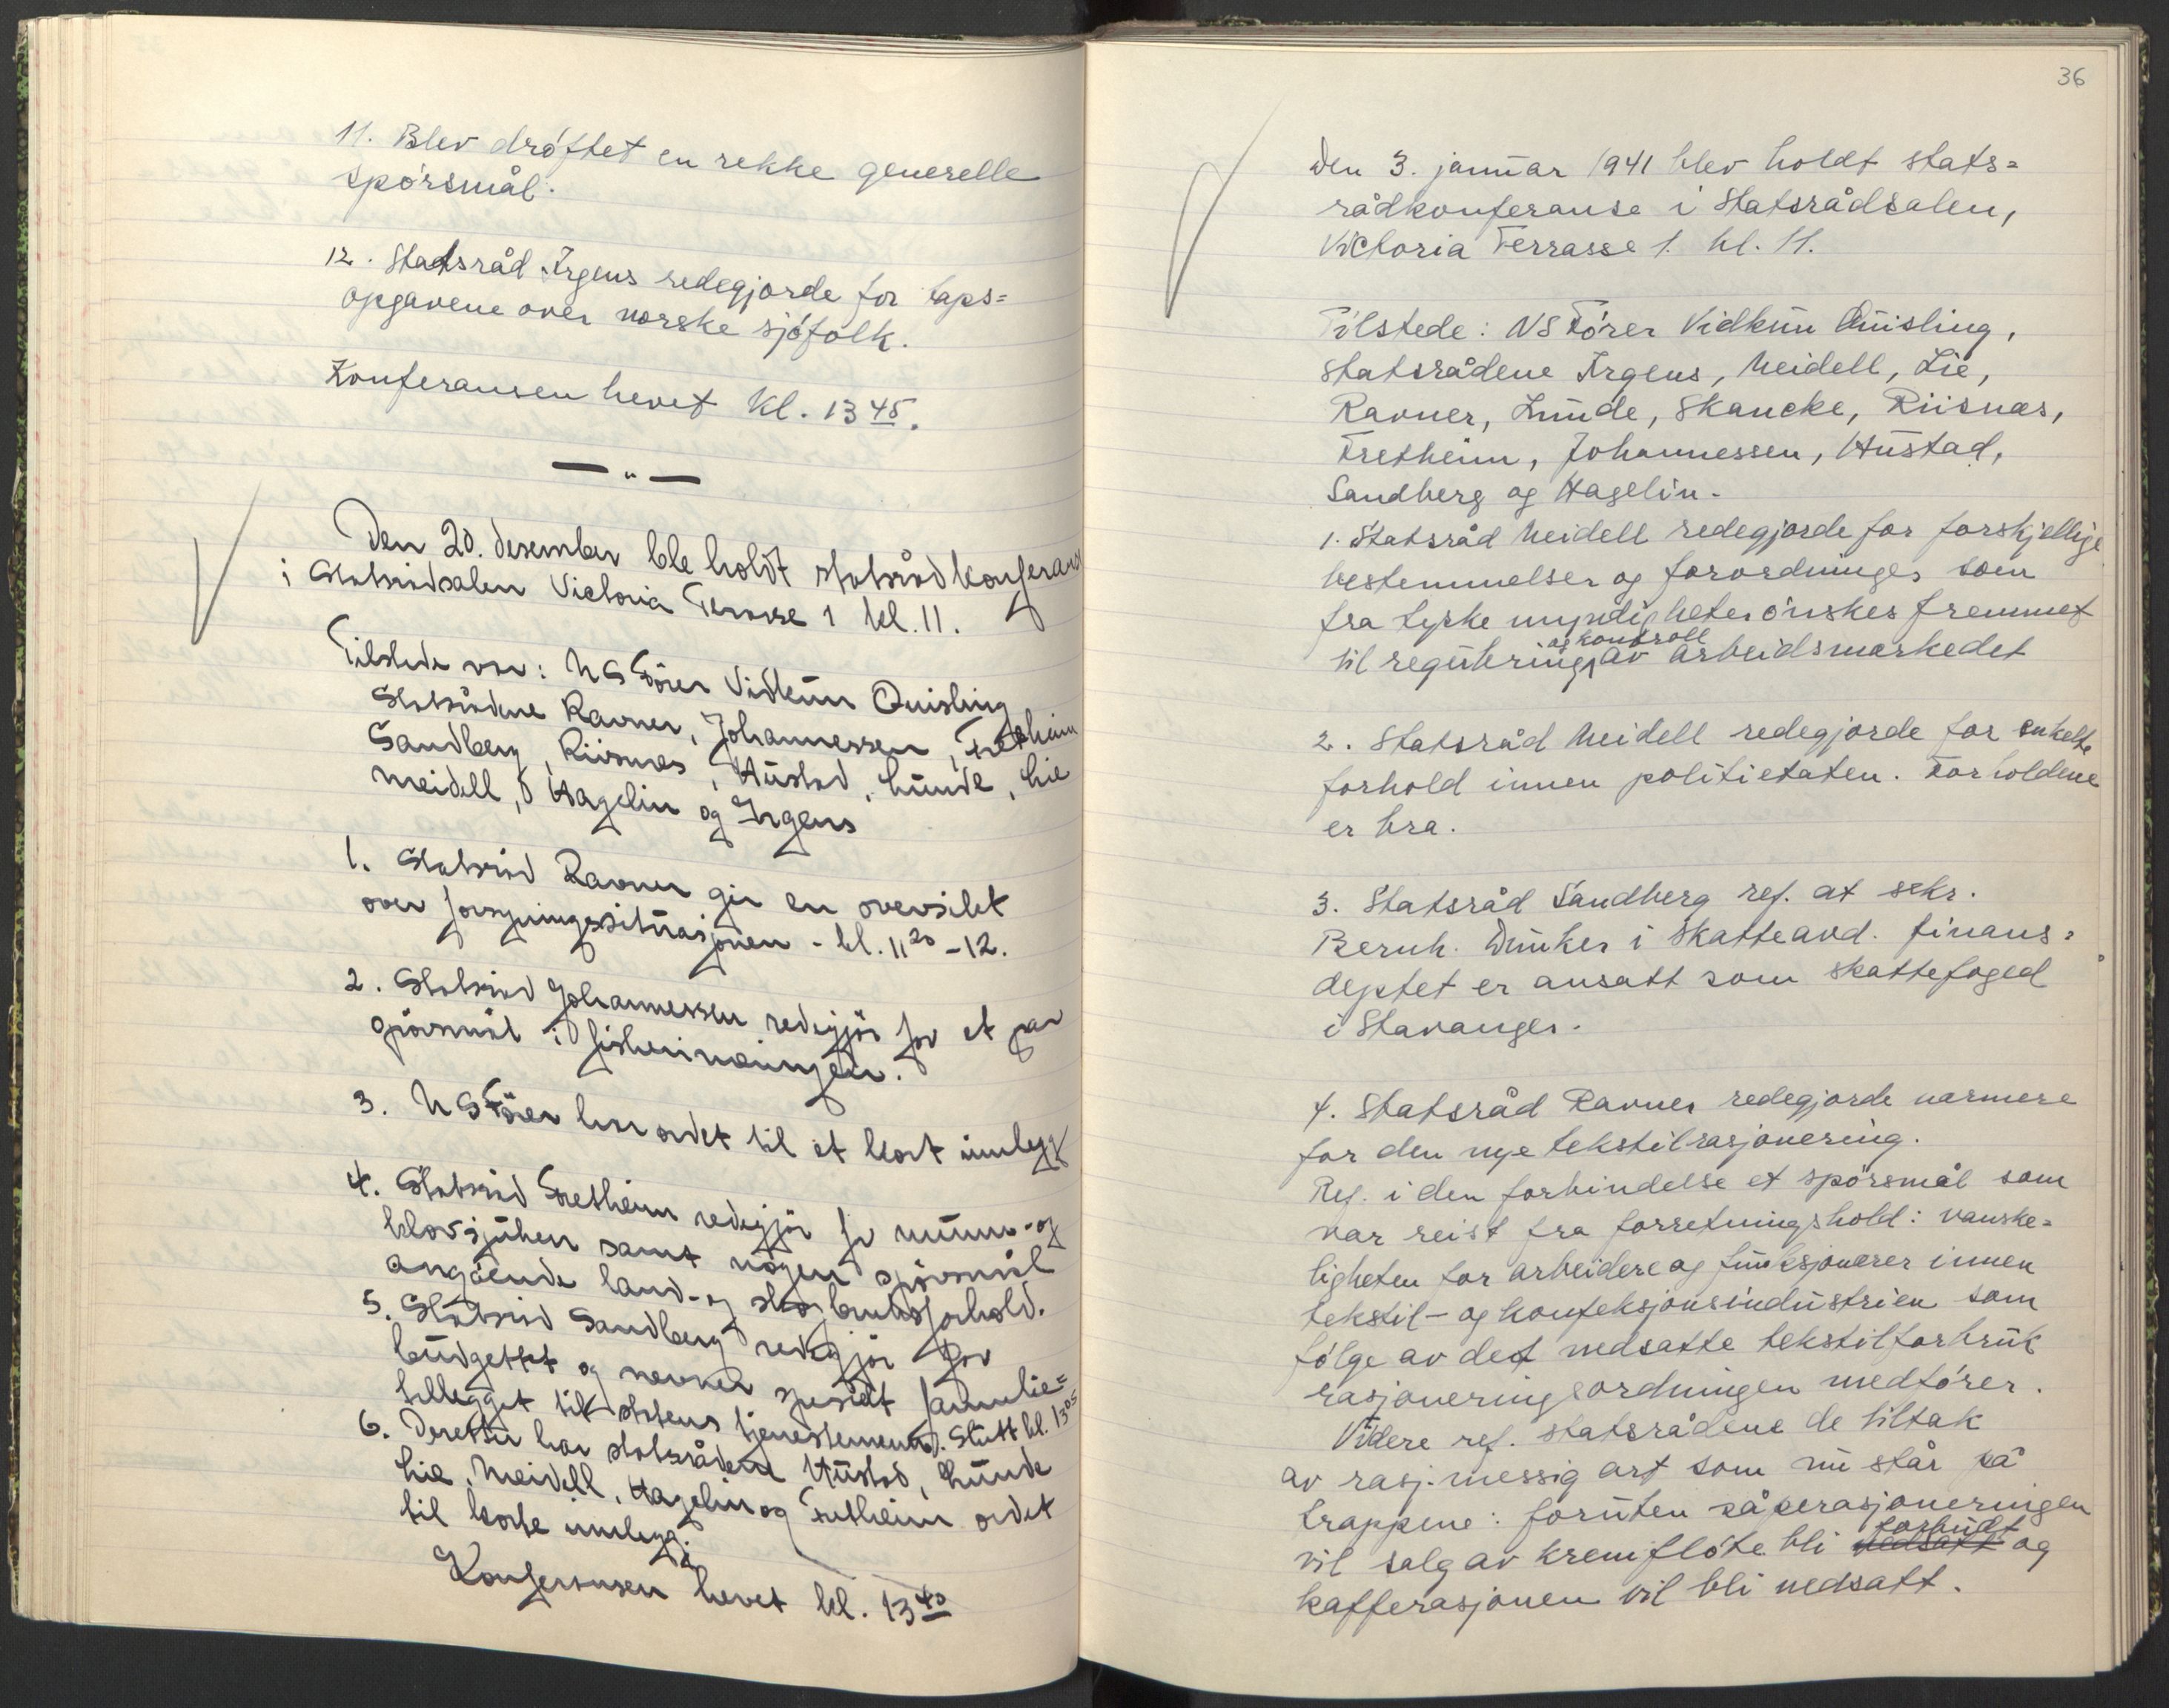 11. Blev drøftet en rekke generelle
spørsmål.
12. Statsråd Irgens redegjorde for taps=
opgavene over norske sjøfolk.
Konferansen hevet kl. 13 45.
— " —
Den 20. desember ble holdt statsrådkonferanse
i Statsrådsalen Victoria Terrasse 1 kl. 11.
Tilstede var: NS Fører Vidkun Quisling
Statsrådene Ravner, Johannessen, Fretheim
Sandberg, Riisnæs, Hustad, Lunde, Lie
Meidell, Hagelin og Irgens
1. Statsråd Ravner gir en oversikt
over forsyningssituasjonen - kl. 11 20 - 12.
2. Statsråd Johannessen redegjør for et par
spørsmål i fiskerinæringen.
3. NS Fører har ordet til et kort innlegg
4. Statsråd Fretheim redegjør for munn- og
klovsjuken samt nogen spørsmål
angående land- og skogbruksforhold.
5. Statsråd Sandberg redegjør for
budgettet og nevner spesielt familie=
tillegget til statens tjenestemenn. Slutt kl. 13 05
6. Deretter har statsrådene Hustad, Lunde
Lie, Meidell, Hagelin og Fretheim ordet
til korte innlegg.
Konferansen hevet kl. 13 40
36
Den 3. januar 1941 blev holdt stats=
rådkonferanse i Statsrådsalen,
Victoria Terrasse 1. kl. 11.
Tilstede: NS Fører Vidkun Quisling,
statsrådene Irgens, Meidell, Lie,
Ravner, Lunde, Skancke, Riisnæs,
Fretheim, Johannessen, Hustad,
Sandberg og Hagelin.
1. Statsråd Meidell redegjorde for forskjellige
bestemmelser og forordninger som
fra tyske myndigheter ønskes fremmet
til regulering og kontroll av arbeidsmarkedet
2. Statsråd Meidell redegjorde for enkelte
forhold innen politietaten. Forholdene
er bra.
3. Statsråd Sandberg ref. at sekr.
Bernh. Dunker i Skatteavd. finans=
deptet er ansatt som skattefoged
i Stavanger.
4. Statsråd Ravner redegjorde nærmere
for den nye tekstilrasjonering.
Ref. i den forbindelse et spørsmål som
var reist fra forretningshold: vanske=
ligheten for arbeidere og funksjonærer innen
tekstil- og konfeksjonsindustrien som
følge av det nedsatte tekstilforbruk
rasjoneringsordningen medfører.
Videre ref. statsrådene de tiltak
av rasj.messig art som nu står på
trappene: foruten såperasjoneringen
vil salg av kremfløte bli nedsatt forbudt og
kafferasjonen vil bli nedsatt.